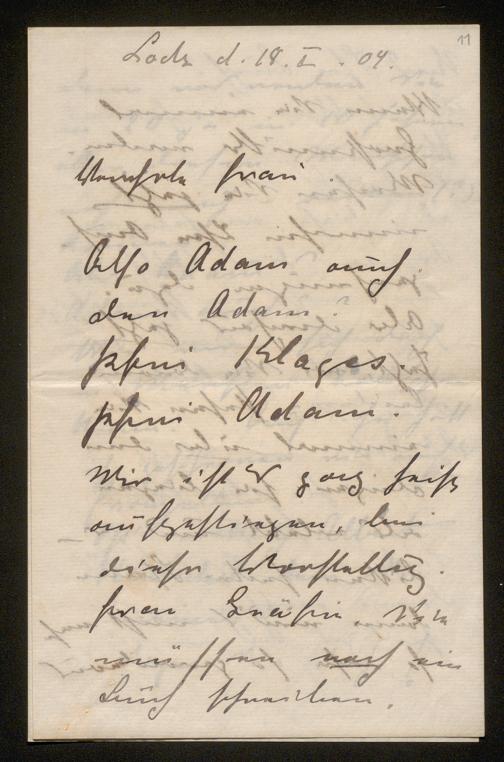 11
Lodz d. 18. I. 04.
Verehrte Frau.
Also Adam auch
den Adam?
Klages.
Adam.
Mir ist ganz heiß
aufgestiegen, bei
dieser Vorstellung.
Frau Gräfin Sie
müssen noch ein
Buch schreiben.